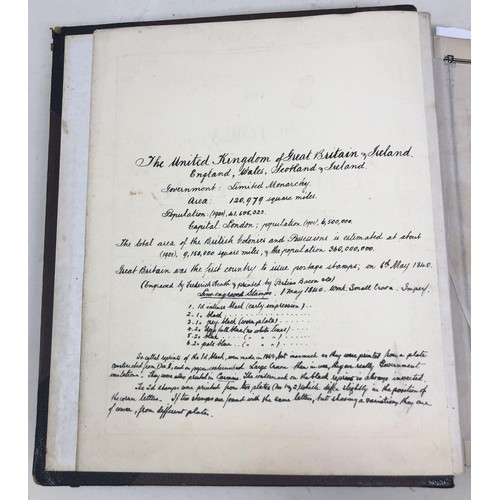 The United Kingdom of Great Britain & Ireland.
England, Wales, Scotland & Ireland.
Government: Limited Monarchy.
Area: 120,979 square miles.
Population: (1901) 41,606,323.
Capital: London; population (1901) 6,500,000.
The total area of the British Colonies and Possessions is estimated at about
(1901) 9,150,000 square miles, & the population 360,000,000.
Great Britain was the first country to issue postage stamps; on 6th May 1840.
(Engraved by Frederick Heath & printed by Perkins Bacon & Co)
Line-engraved Stamps. 1 May 1840. Wmk. Small Crown. Imperf.
1. 1d. intense black (early impression)
2. 1d. black
3. 1d. grey black (worn plate)
4. 2d. deep full blue (no white lines)
5. 2d. blue ( " " )
6. 2d. pale blue ( " " )
So called reprints of the 1d. black, were made in 1864, but inasmuch as they were printed from a plate
constructed from Die II, and on paper watermarked Large Crown they are really Government
imitations. They were also printed in Carmine. The watermark on the black reprint is always inverted.
The 2d. stamps were printed from two plates (Nos 1 & 2) which differ slightly in the position of
the corner letters. If two stamps are found with the same letters, but showing a variation, they are
of course, from different plates.